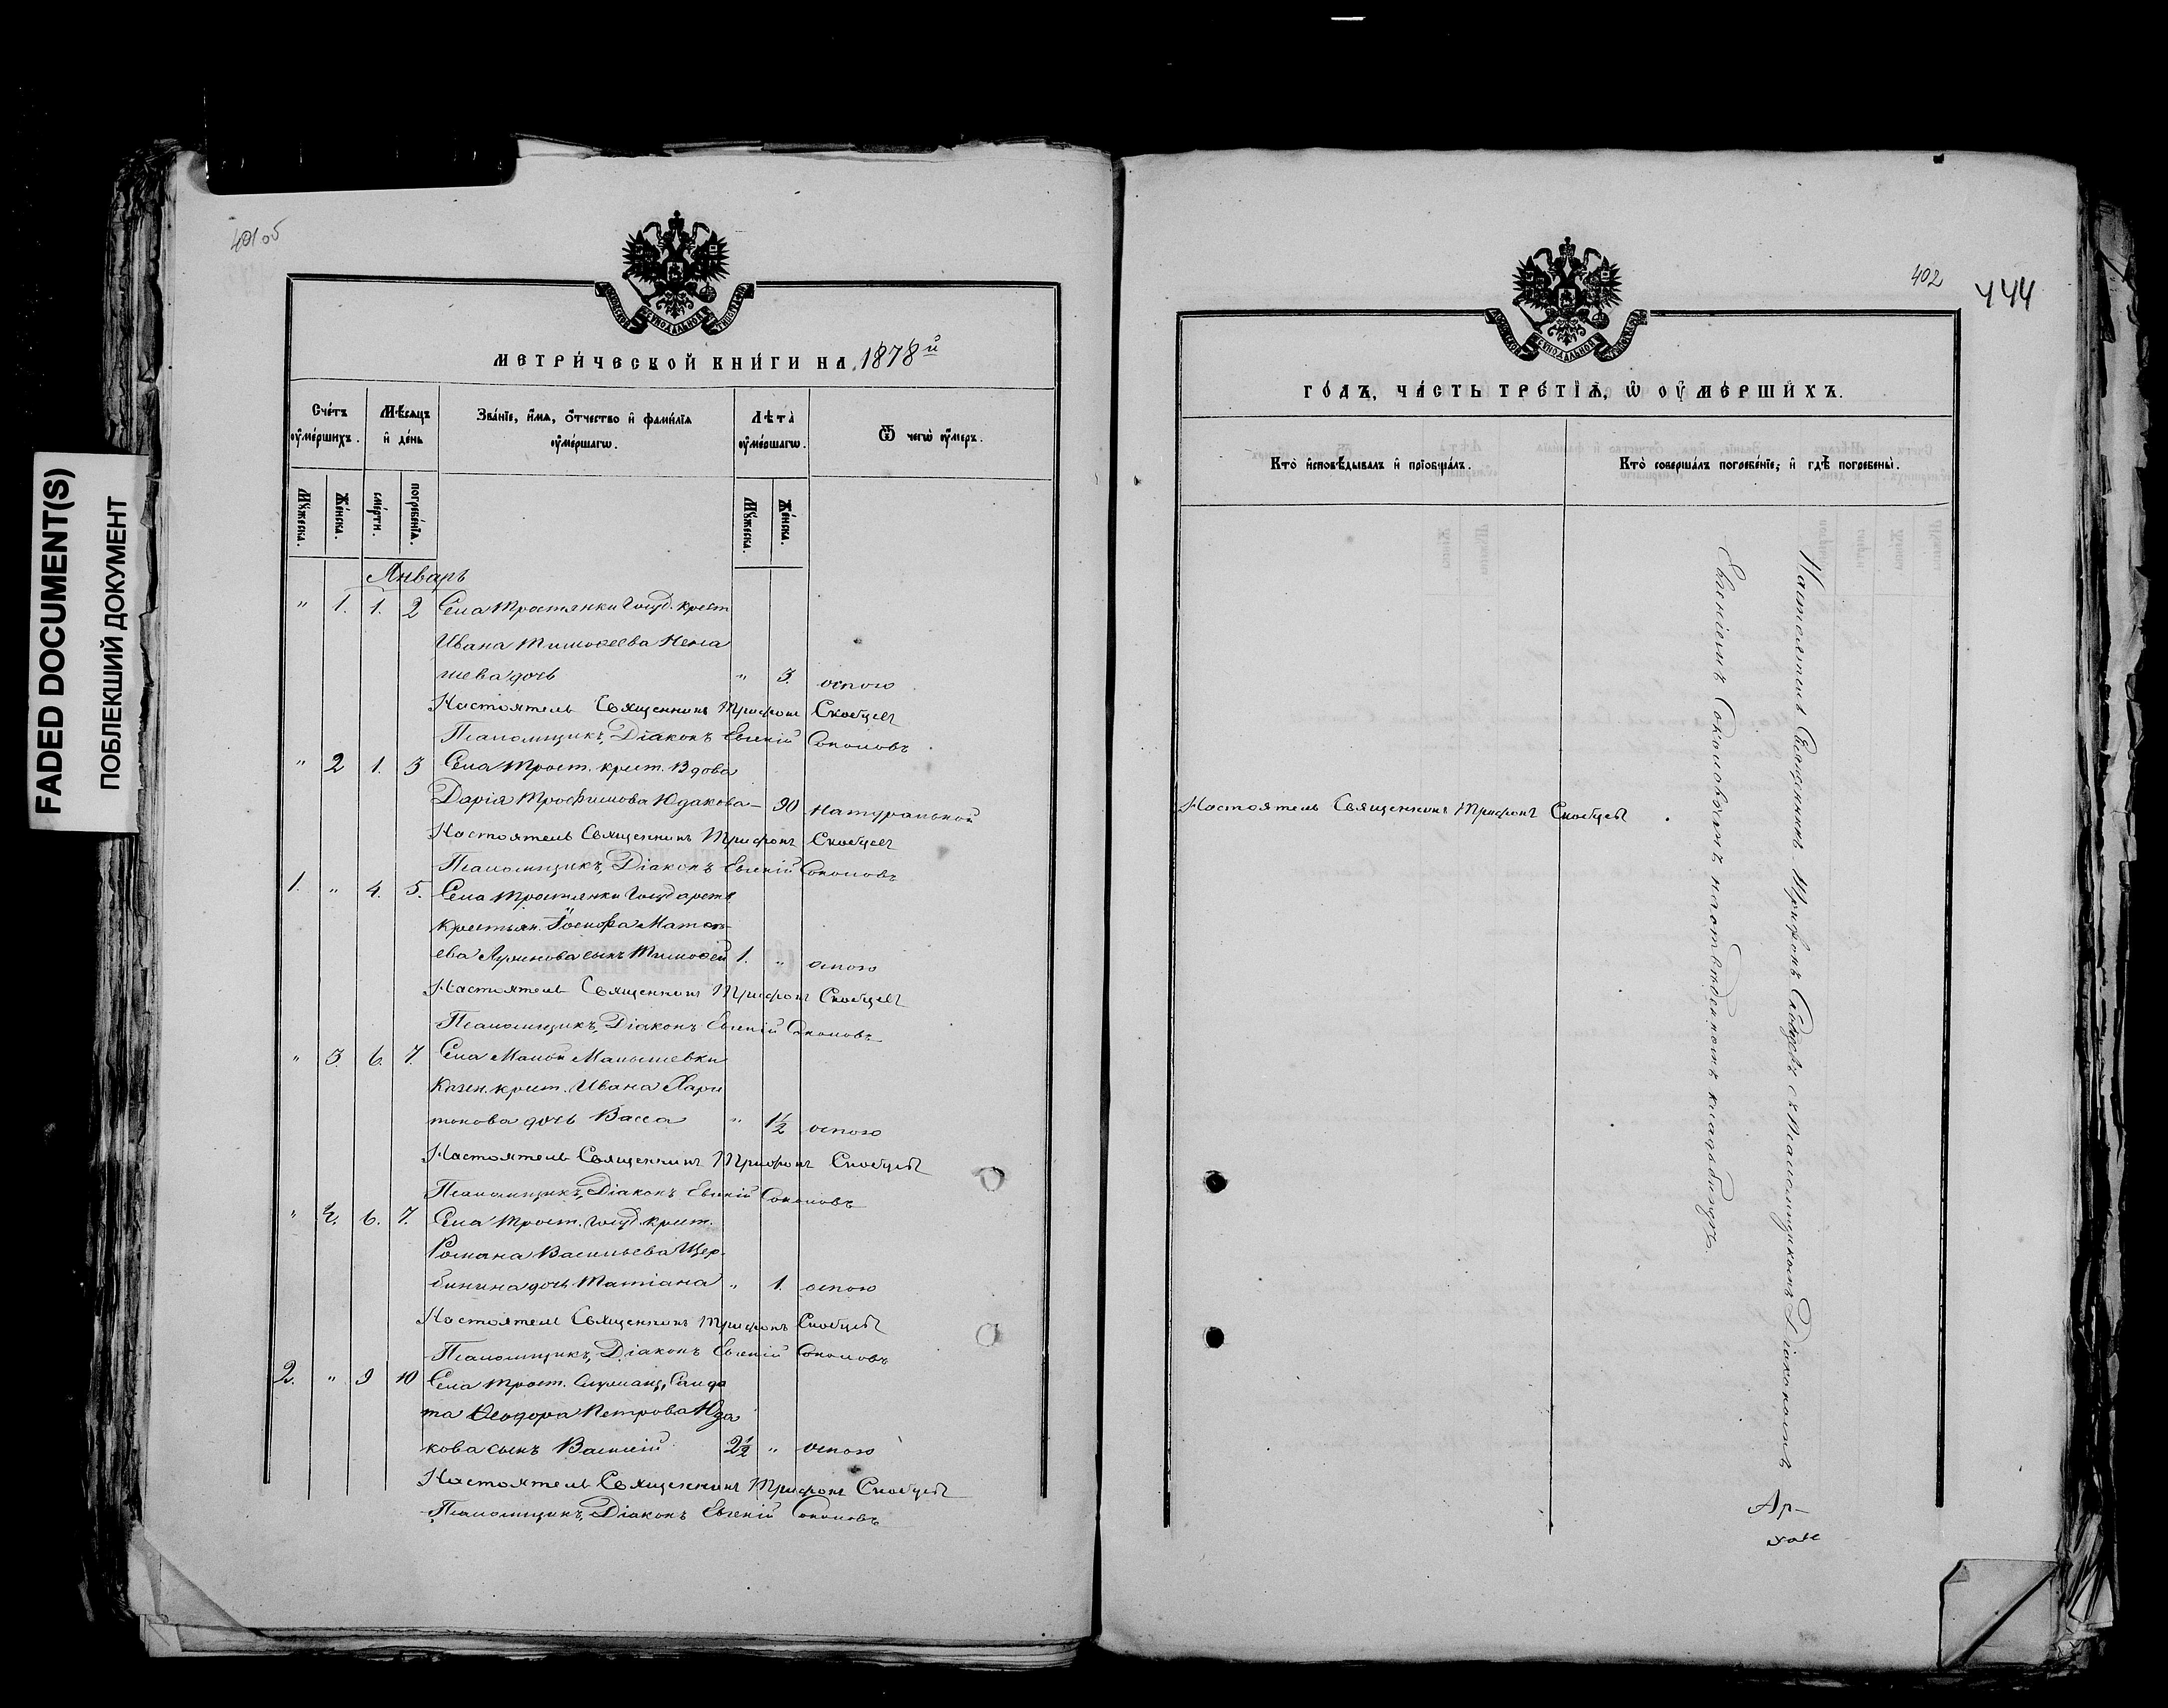 FADED DOCUMENT(S)
ПОБЛЕКШИЙ ДОКУМЕНТ
401 об
МЕТРИ́ЧЕСКОЙ КНИ́ГИ НА 1878й
Сче́тъ ᲂу҆ме́ршихъ.
Мѣ́сяцъ и҆ де́нь
Зва́нїе, и҆́мя, ѻ҆́тчество и҆ фами́лїя ᲂу҆ме́ршагѡ.
Лѣта̀ ᲂу҆ме́ршагѡ.
Ѿ чегѡ̀ ᲂу҆́меръ.
Мꙋ́жеска.
Же́нска.
сме́рти.
погребе́нїѧ.
Мꙋ́жеска.
Же́нска.
Январь
" 1. 1. 2 Села Тростянки Госуд. крест
Ивана Тимоѳеева
шева дочь " 3. оспою
Настоятель Священникъ Трифонъ Скобцевъ
Псаломщикъ, Діаконъ Евгеній Соколовъ
" 2 1. 3 Села Трост. крест. Вдова
Дарія Трофимова Юдакова – 90 натуральной
Настоятель Священникъ Трифонъ Скобцевъ
Псаломщикъ, Діаконъ Евгеній Соколовъ
1. " 4. 5. Села Тростянки Государств
крестьян. Іосифа Матвѣ-
ева сынъ Тимоѳей 1. " оспою
Настоятель Священникъ Трифонъ Скобцевъ
Псаломщикъ, Діаконъ Евгеній Соколовъ
" 3. 6. 7. Села Малой Малышевки
Казен. крест. Ивана Хари
тонова дочь Васса " 1½ оспою
Настоятель Священникъ Трифонъ Скобцевъ
Псаломщикъ, Діаконъ Евгеній Соколовъ
" 4. 6. 7. Села Трост. Госуд. крест.
Романа Васильева Щер-
бинина дочь Татіана " 1. оспою
Настоятель Священникъ Трифонъ Скобцевъ
Псаломщикъ, Діаконъ Евгеній Соколовъ
2. " 9 10 Села Трост. Солда
та Ѳеодора Петрова Юда
кова сынъ Василій 2½ " оспою
Настоятель Священникъ Трифонъ Скобцевъ
Псаломщикъ, Діаконъ Евгеній Соколовъ
402
444
ГО́ДЪ, ЧА́СТЬ ТРЕ́ТЇѦ, Ѡ҆ ᲂУ҆МЕ́РШИХЪ.
Кто̀ и҆сповѣ́дывалъ и҆ прїѡбща́лъ.
Кто̀ соверша́лъ погребе́нїе, и҆ гдѣ̀ погребены̀.
Настоятель Священникъ Трифонъ Скобцевъ
Настоятель Священникъ Трифонъ Скобцевъ съ Псаломщикомъ Діакономъ
Евгеніемъ Соколовымъ на отведенномъ кладбищѣ.